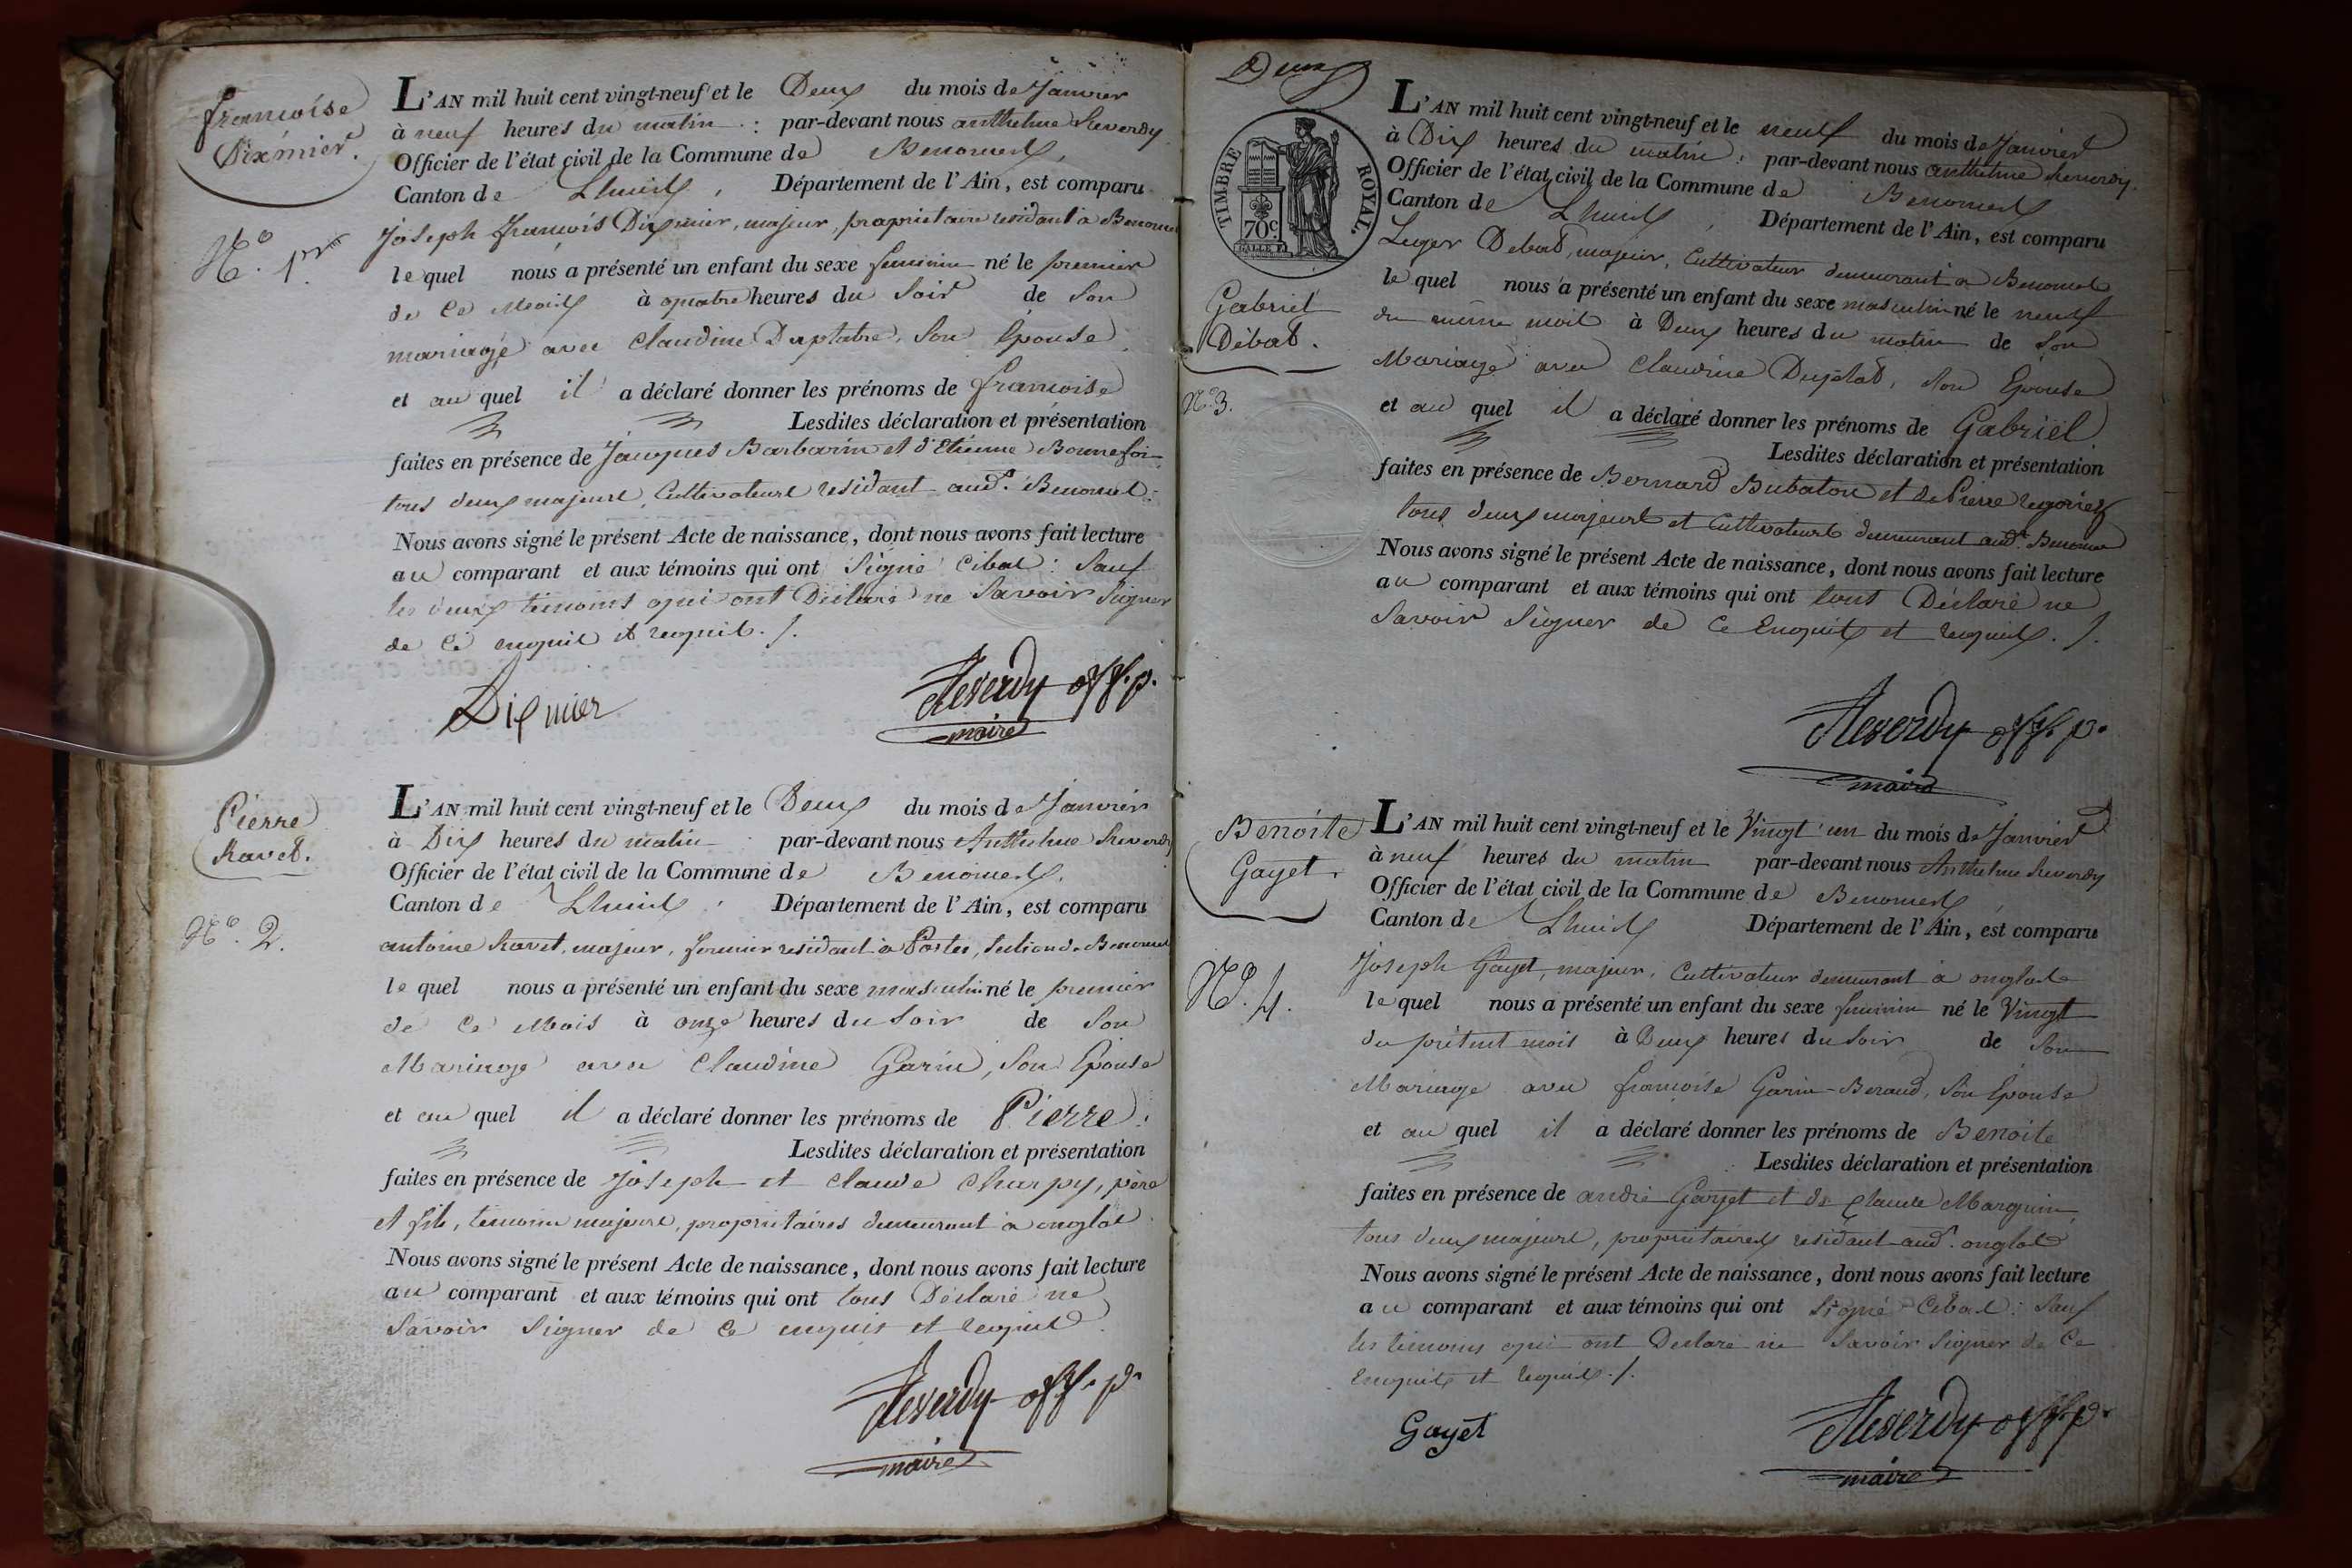 françoise
Dixmier.
N.º 1.er
L'AN mil huit cent vingt-neuf et le Deux du mois de Janvier
à neuf heures du matin : par-devant nous anthelme Reverdy
Officier de l'état civil de la Commune de Benonces,
Canton de Lhuis, Département de l'Ain, est comparu
Joseph françois Dixmier, majeur, propriétaire residant à Benonces
le quel nous a présenté un enfant du sexe feminin né le premier
de ce mois à quatre heures du soir de son
mariage avec Claudine Duplatre, son Epouse,
et au quel il a déclaré donner les prénoms de françoise
Lesdites déclaration et présentation
faites en présence de Jacques Barbarin et d'Etienne Bonnefoi,
tous deux majeurs, Cultivateurs residant aud. Benonces.
Nous avons signé le présent Acte de naissance, dont nous avons fait lecture
au comparant et aux témoins qui ont Signé cibas : Sauf
les deux témoins qui ont Déclaré ne Savoir Signer
de ce enquis et requis ./.
Dixmier
Reverdy off. p.
maire
Pierre
Ravet.
N.º 2.
L'AN mil huit cent vingt-neuf et le Deux du mois de Janvier
à Dix heures du matin par-devant nous Anthelme Reverdy
Officier de l'état civil de la Commune de Benonces.
Canton de Lhuis, Département de l'Ain, est comparu
antoine Ravet, majeur, fermier residant à Portes, section de Benonces
le quel nous a présenté un enfant du sexe masculin né le premier
de ce Mois à onze heures du soir de son
Mariage avec Claudine Garin, son Epouse
et au quel il a déclaré donner les prénoms de Pierre.
Lesdites déclaration et présentation
faites en présence de Joseph et Claude Charpy, père
et fils, témoins majeurs, propriétaires demeurant à onglas
Nous avons signé le présent Acte de naissance, dont nous avons fait lecture
au comparant et aux témoins qui ont tous Déclaré ne
Savoir Signer de ce enquis et requis
Reverdy off. p.
maire
Deux
TIMBRE ROYAL.
70c
Gabriel
Débat.
N.º 3.
L'AN mil huit cent vingt-neuf et le neuf du mois de Janvier
à Dix heures du matin, par-devant nous anthelme Reverdy.
Officier de l'état civil de la Commune de Benonces
Canton de Lhuis, Département de l'Ain, est comparu
Leger Debat, majeur, Cultivateur demeurant à Benonces
le quel nous a présenté un enfant du sexe masculin né le neuf
du même mois à Deux heures du matin de son
Mariage avec Claudine Duplat, son Epouse
et au quel il a déclaré donner les prénoms de Gabriel
Lesdites déclaration et présentation
faites en présence de Bernard Bubaton et de Pierre
tous deux majeurs et Cultivateurs demeurant aud. Benonces
Nous avons signé le présent Acte de naissance, dont nous avons fait lecture
au comparant et aux témoins qui ont tous Déclaré ne
Savoir Signer de ce Enquis et requis ./.
Reverdy off. p.
maire
Benoite
Gayet.
N.º 4.
L'AN mil huit cent vingt-neuf et le Vingt un du mois de Janvier
à neuf heures du matin par-devant nous Anthelme Reverdy
Officier de l'état civil de la Commune de Benonces,
Canton de Lhuis Département de l'Ain, est comparu
Joseph Gayet, majeur, Cultivateur demeurant à onglas
le quel nous a présenté un enfant du sexe feminin né le Vingt
du présent mois à Deux heures du soir de son
Mariage avec françoise Garin-Beraud, son Epouse
et au quel il a déclaré donner les prénoms de Benoite
Lesdites déclaration et présentation
faites en présence de andré Gayet et de Claude Marguin,
tous deux majeurs, propriétaires residant aud. onglas
Nous avons signé le présent Acte de naissance, dont nous avons fait lecture
au comparant et aux témoins qui ont Signé Cibas : Sauf
les témoins qui ont Déclaré ne Savoir Signer de Ce
Enquis et requis ./.
Gayet
Reverdy off. p.
maire